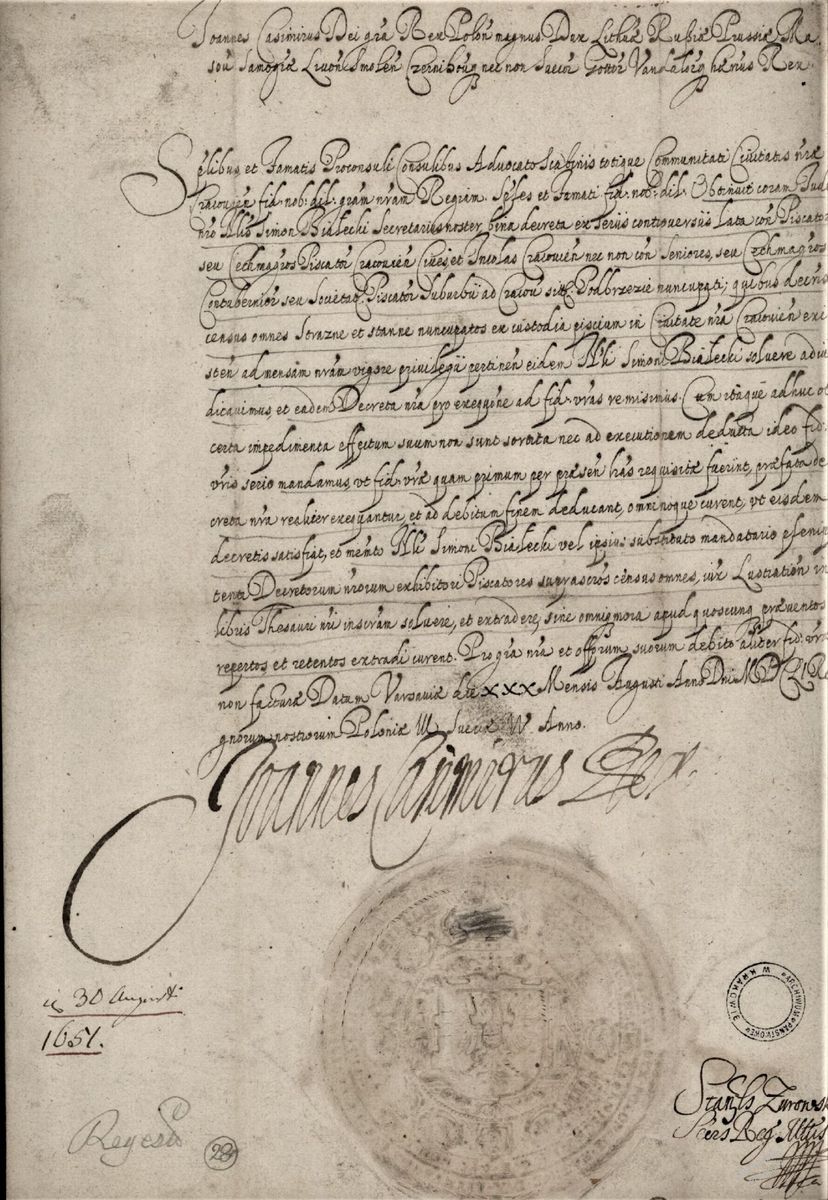 Joannes Casimirus Dei grã Rex Polon̄ magnus Dux Lithuæ Russiæ Prussiæ Ma
sov Samogiæ Livon Smolen Czernihovq nec non Suecor Gottor Vandalorq hærius Rex
Spẽlibus et Famatis Proconsuli Consulibus Advocato Scabinis totique Communitati Civitatis nræ
Cracovien̄ fid. nob. dil. grãm nrãm Regiam. Spẽles et Famati fid. nob. dil. Obtinuit coram Jud
nrõ Simon Białecki Secretarius noster bina decreta ex seriis controversiis lata con Piscator
seu Cechmagros Piscator Cracovien̄ Cives et Incolas Cracovien̄ nec non con Seniores, seu Cechmagros
Contubernior seu Societat Piscator Suburbii ad Cracov sitt Podbrzezie nuncupati; quibus decris
census omnes Strazne et stanne nuncupatos ex custodia piscium in Civitate nrã Cracovien̄ exi
sten̄ ad mensam nrãm vigore privilegii pertinen̄ eidem Simoni Białecki solvere adiu
dicavimus, et eadem Decreta nrã pro exeqũne ad fid. vras remisimus. Cum itaque adhuc ob
certa impedimenta effectum suum non sunt sortita nec ad executionem deducta ideo fid.
vris serio mandamus, ut fid. vræ quam primum per præsen̄ has requisitæ fuerint, præfata de
creta nrã realiter exequantur, et ad debitum finem deducant, omninoque curent, ut eisdem
decretis satisfiat, et memto Simoni Białecki vel ipsius substituto mandatario pſenim
tenti Decretorum nrorum exhibitori Piscatores suprascros census omnes, iux Lustration in
libris Thesauri nri inscram solvere, et extradere, sine omni mora apud quoscunq præventos
repertos et retentos extradi curent. Pro grã nrã et offorum suorum debito aliter fid. vræ
non facturæ Datum Varsaviæ die XXX Mensis Augusti Anno Dni MDCLI Re
gnorum nostrorum Poloniæ III Sueciæ IV Anno.
Joannes Casimirus Rex.
30 Augusti
1651.
Regest
28
ARCHIWUM PAŃSTWOWE W KRAKOWIE
Stanils Zurowsk
Secris Reg. Mttis